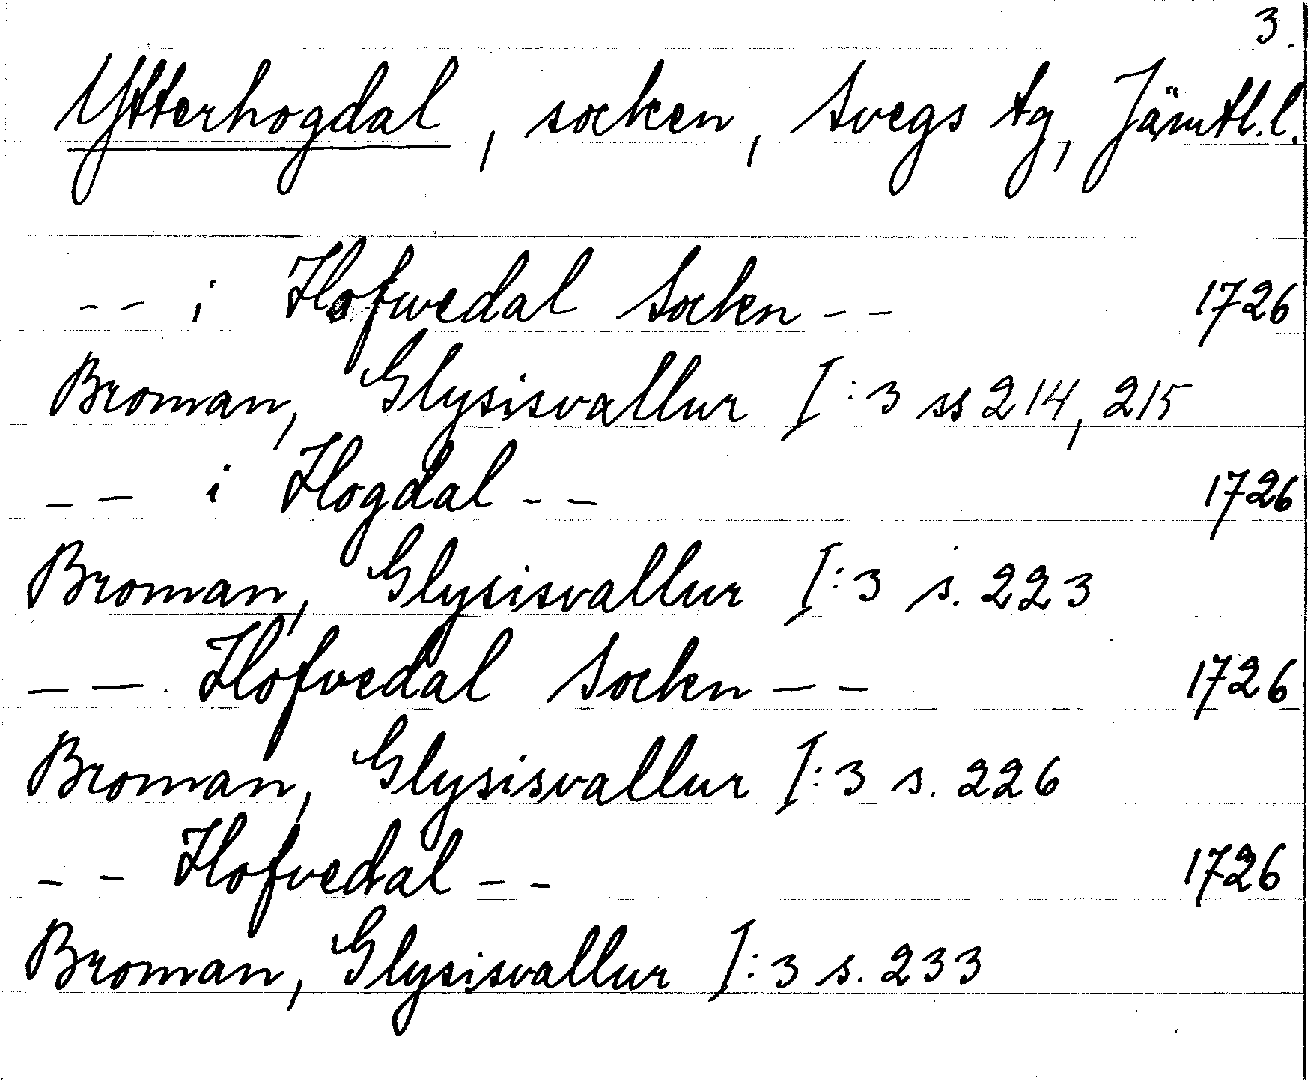 3.
Ytterhogdal, socken, Svegs tg, Jämtl.l.
-- i Hofwedal Socken -- 1726
Broman, Glysisvallur I:3 ss 214, 215
-- i Hogdal -- 1726
Broman, Glysisvallur I:3 s. 223
-- Hofvedal Socken -- 1726
Broman, Glysisvallur I:3 s. 226
-- Hofvedal -- 1726
Broman, Glysisvallur I:3 s. 233